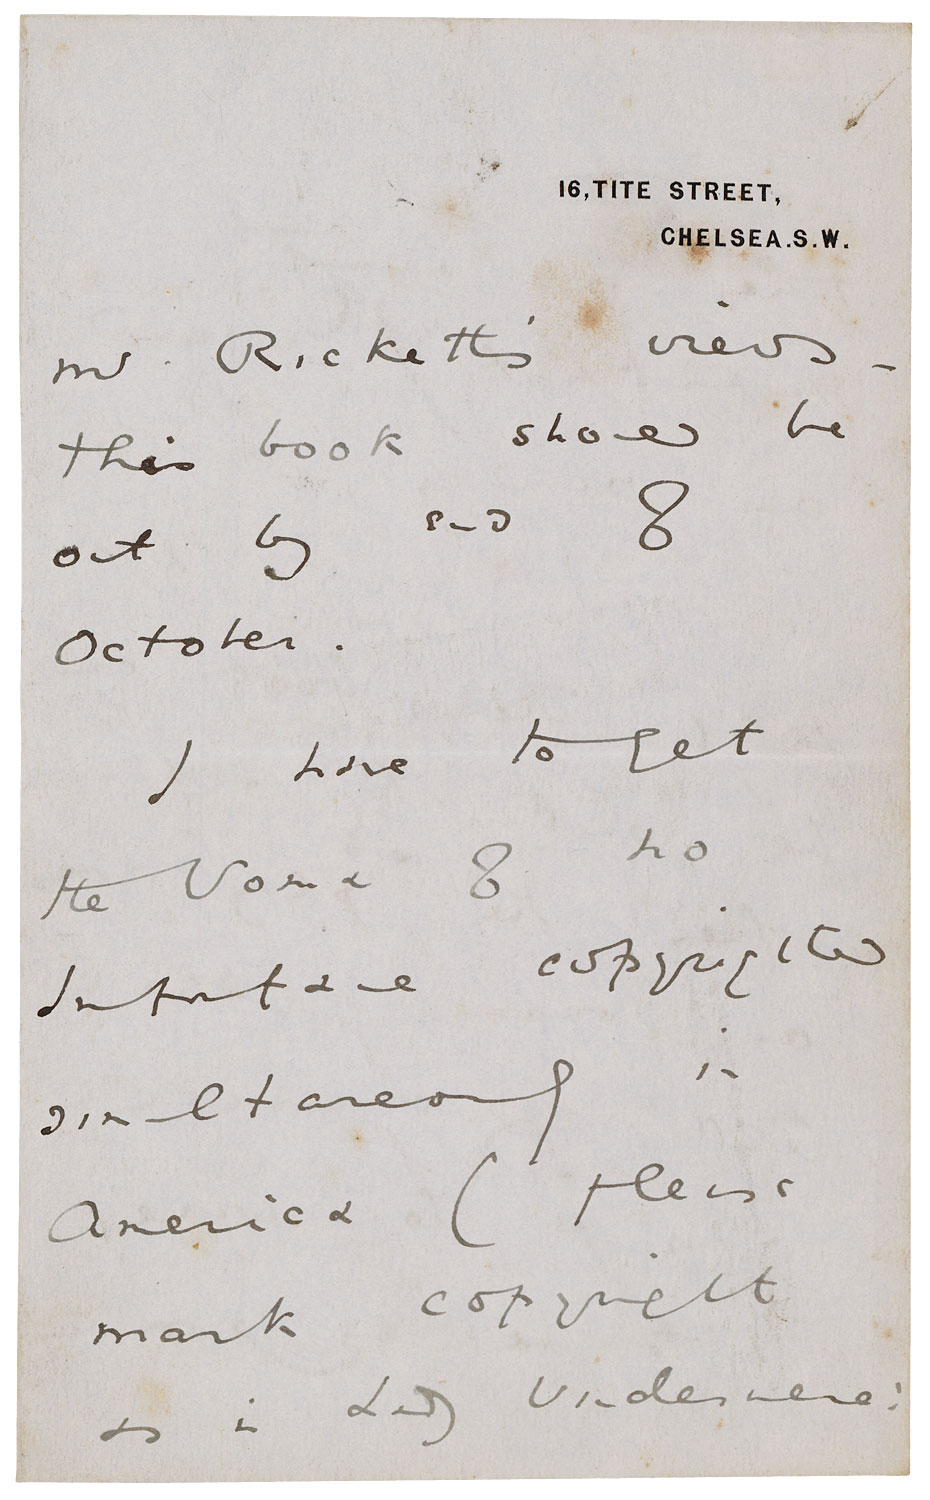 16, TITE STREET,
CHELSEA. S. W.
Mr. Ricketts's views –
this book should be
out by end of
October.
I have to get
the Woman of no
Importance copyrighted
simultaneously in
America (please
mark copyright
as in Lady Windermere: